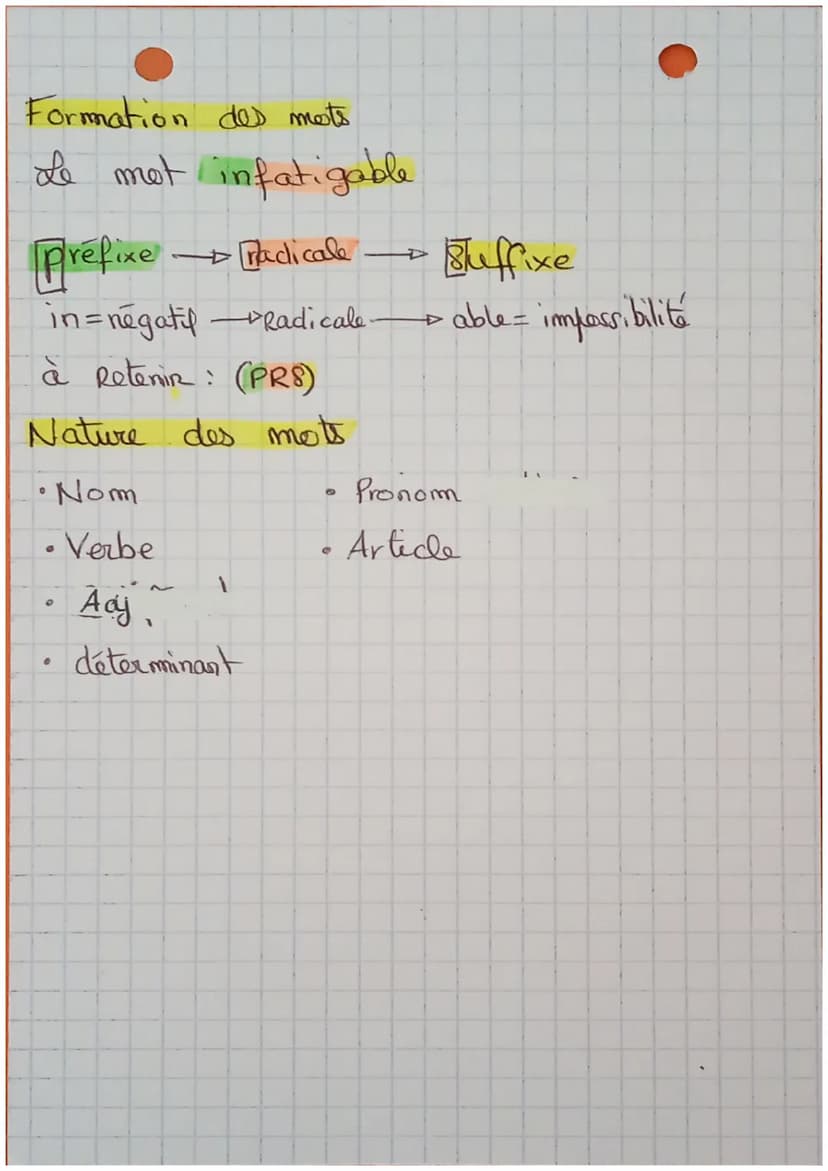 Formation des mots
Le mot infatigable
préfixe → Radicale → Suffixe
in=négatif → Radicale → able= impossibilité
à Retenir : (PRS)
Nature des mots
• Nom • Pronom
• Verbe • Article
• Adj
• déterminant